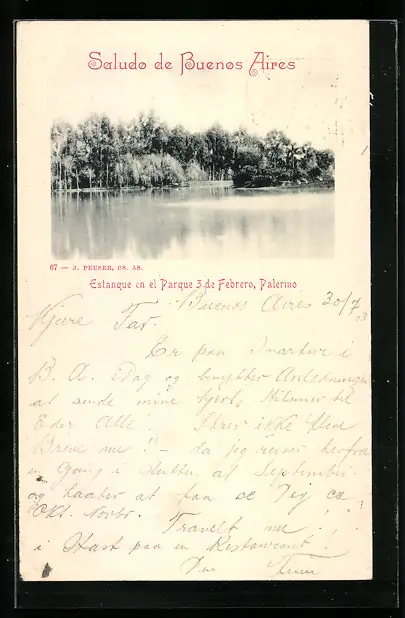 Saludo de Buenos Aires
67 — J. PEUSER, BS. AS.
Estanque en el Parque 3 de Febrero, Palermo
Buenos Aires 30/7 03
Kjære Far.
Er paa Smartur i
B. A. idag og benytter Anledningen
at sende mine hjert. Hilsner til
Eder Alle. Skriv ikke flere
Breve nu! — da jeg reiser herfra
en Gang i Slutten af September
og haaber at faa se Dig ca
Okt. Novbr. Travelt nu!
i Hast paa en Restaurant.
Din